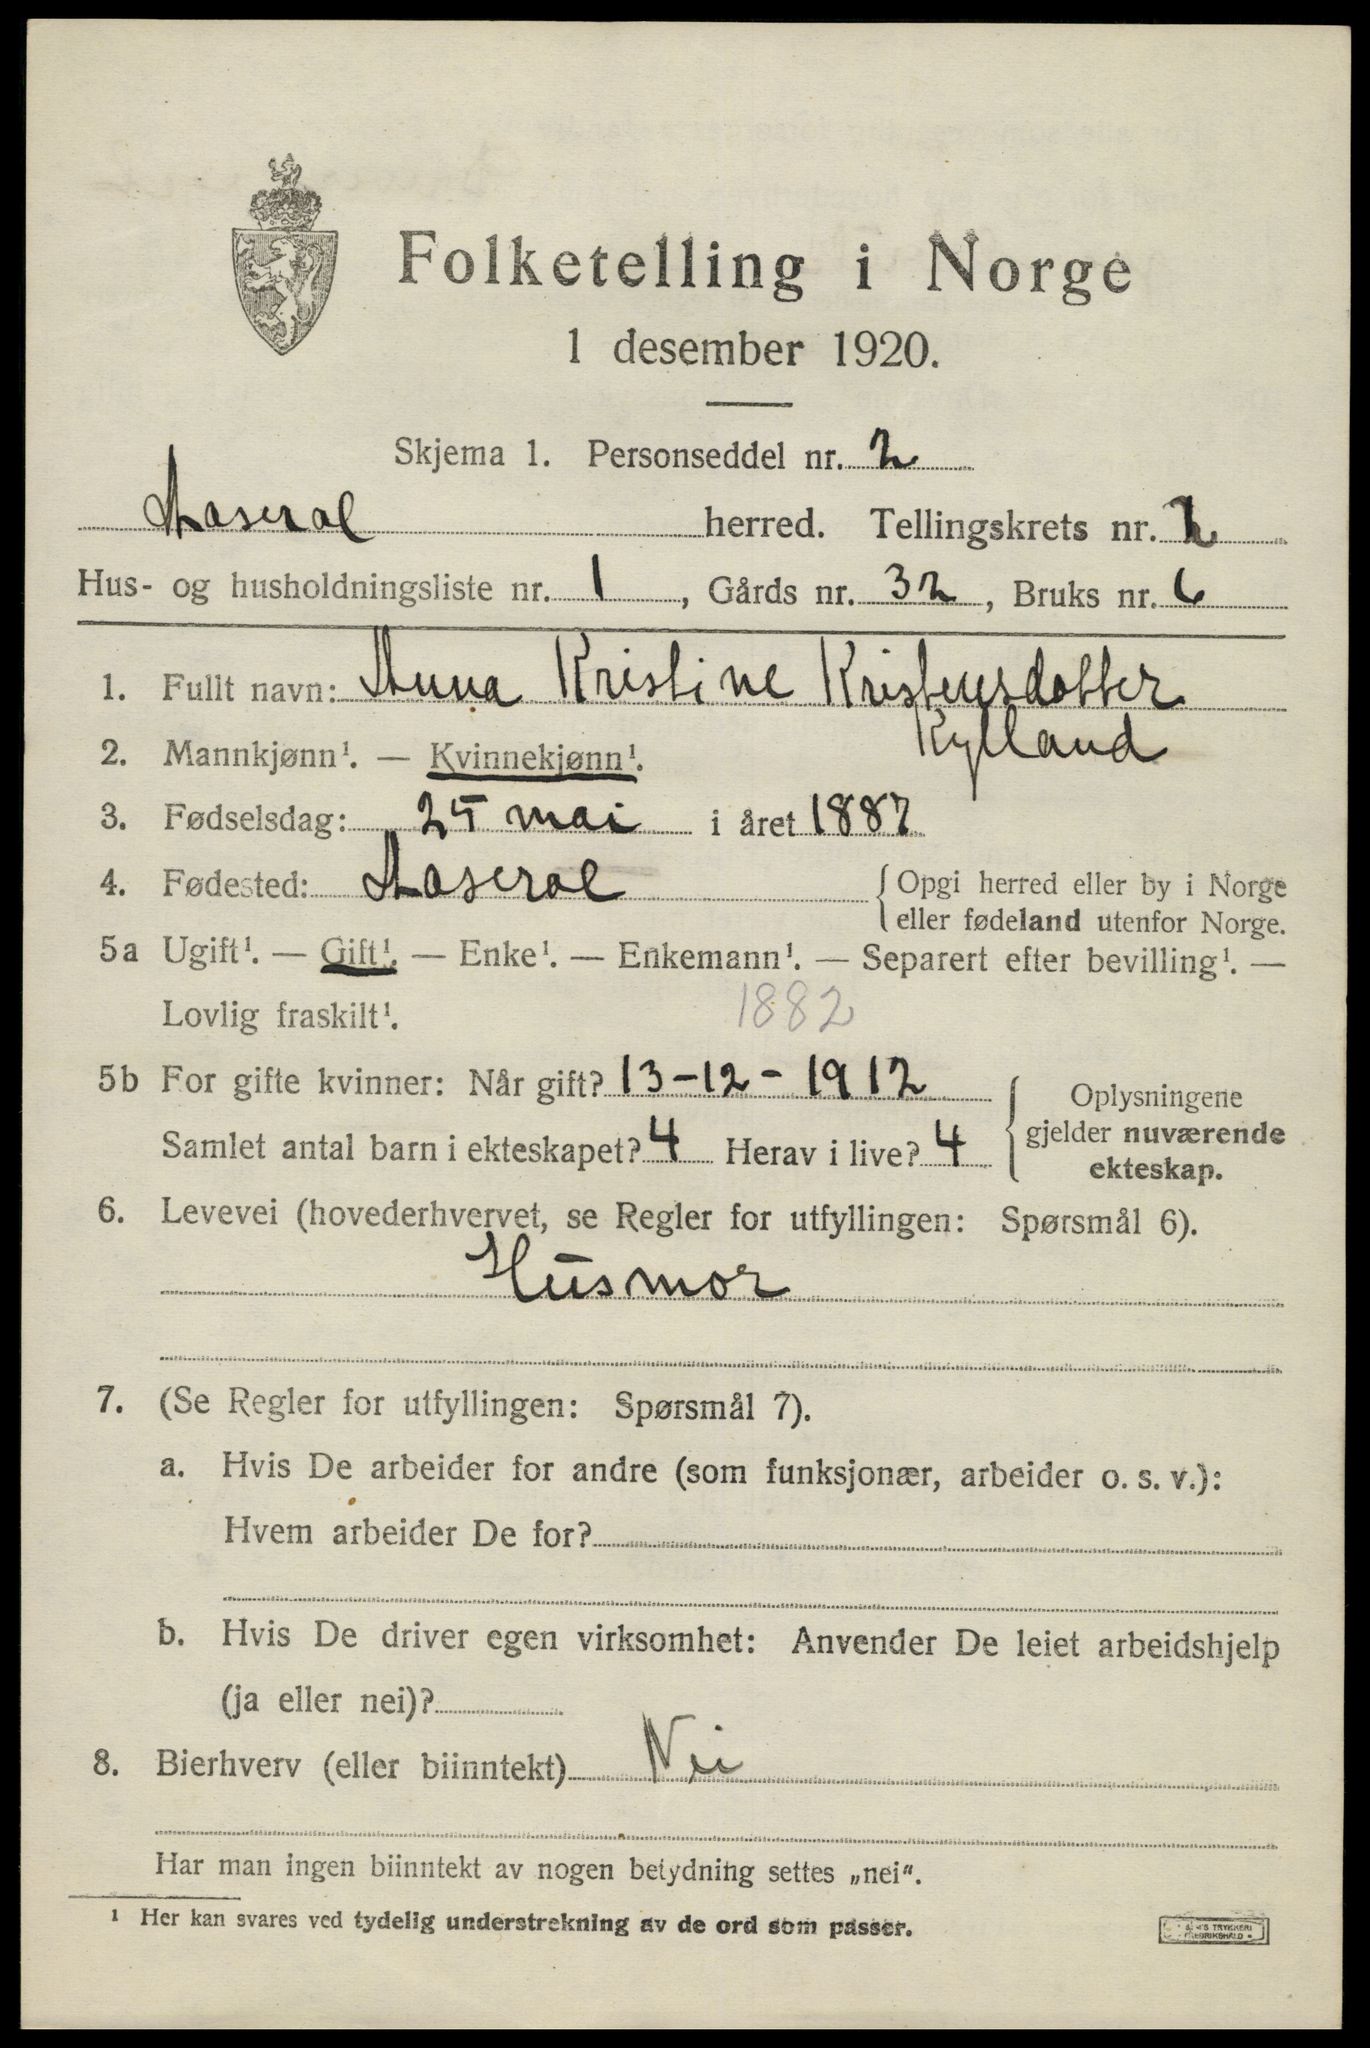 Folketelling i Norge
1 desember 1920.
Skjema 1. Personseddel nr. 2
Aaseral herred. Tellingskrets nr. 2
Hus- og husholdningsliste nr. 1, Gårds nr. 32, Bruks nr. 6
1. Fullt navn: Anna Kristine Kristensdotter
Kylland
2. Mannkjønn¹. — Kvinnekjønn¹.
3. Fødselsdag: 25 mai i året 1887
4. Fødested: Aaseral {Opgi herred eller by i Norge
eller fødeland utenfor Norge.
5a Ugift¹. — Gift¹. — Enke¹. — Enkemann¹. — Separert efter bevilling¹. —
Lovlig fraskilt¹. 1882
5b For gifte kvinner: Når gift? 13-12-1912 {Oplysningene
gjelder nuværende
ekteskap.
Samlet antal barn i ekteskapet? 4 Herav i live? 4
6. Levevei (hovederhvervet, se Regler for utfyllingen: Spørsmål 6).
Husmor
7. (Se Regler for utfyllingen: Spørsmål 7).
a. Hvis De arbeider for andre (som funksjonær, arbeider o. s. v.):
Hvem arbeider De for?
b. Hvis De driver egen virksomhet: Anvender De leiet arbeidshjelp
(ja eller nei)?
8. Bierhverv (eller biinntekt) Nei
Har man ingen biinntekt av nogen betydning settes „nei".
¹ Her kan svares ved tydelig understrekning av de ord som passer.
TRYKKERI